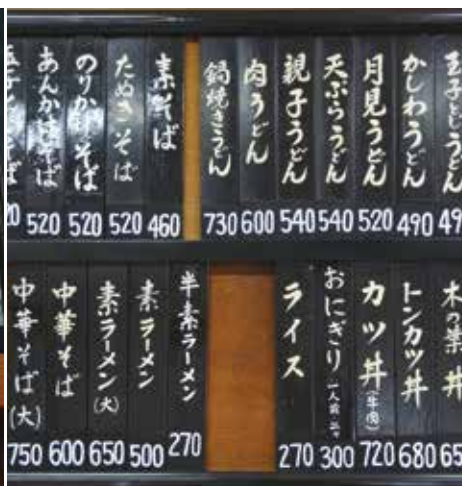 玉子とじうどん
49
かしわうどん
490
月見うどん
520
天ぷらうどん
540
親子うどん
540
肉うどん
600
鍋焼きうどん
730
素そば
460
たぬきそば
520
のりかけそば
520
あんかけそば
520
20
木の葉丼
65
トンカツ丼
680
カツ丼(牛肉)
720
おにぎり 一人前
300
ライス
270
半素ラーメン
270
素ラーメン
500
素ラーメン(大)
650
中華そば
600
中華そば(大)
750